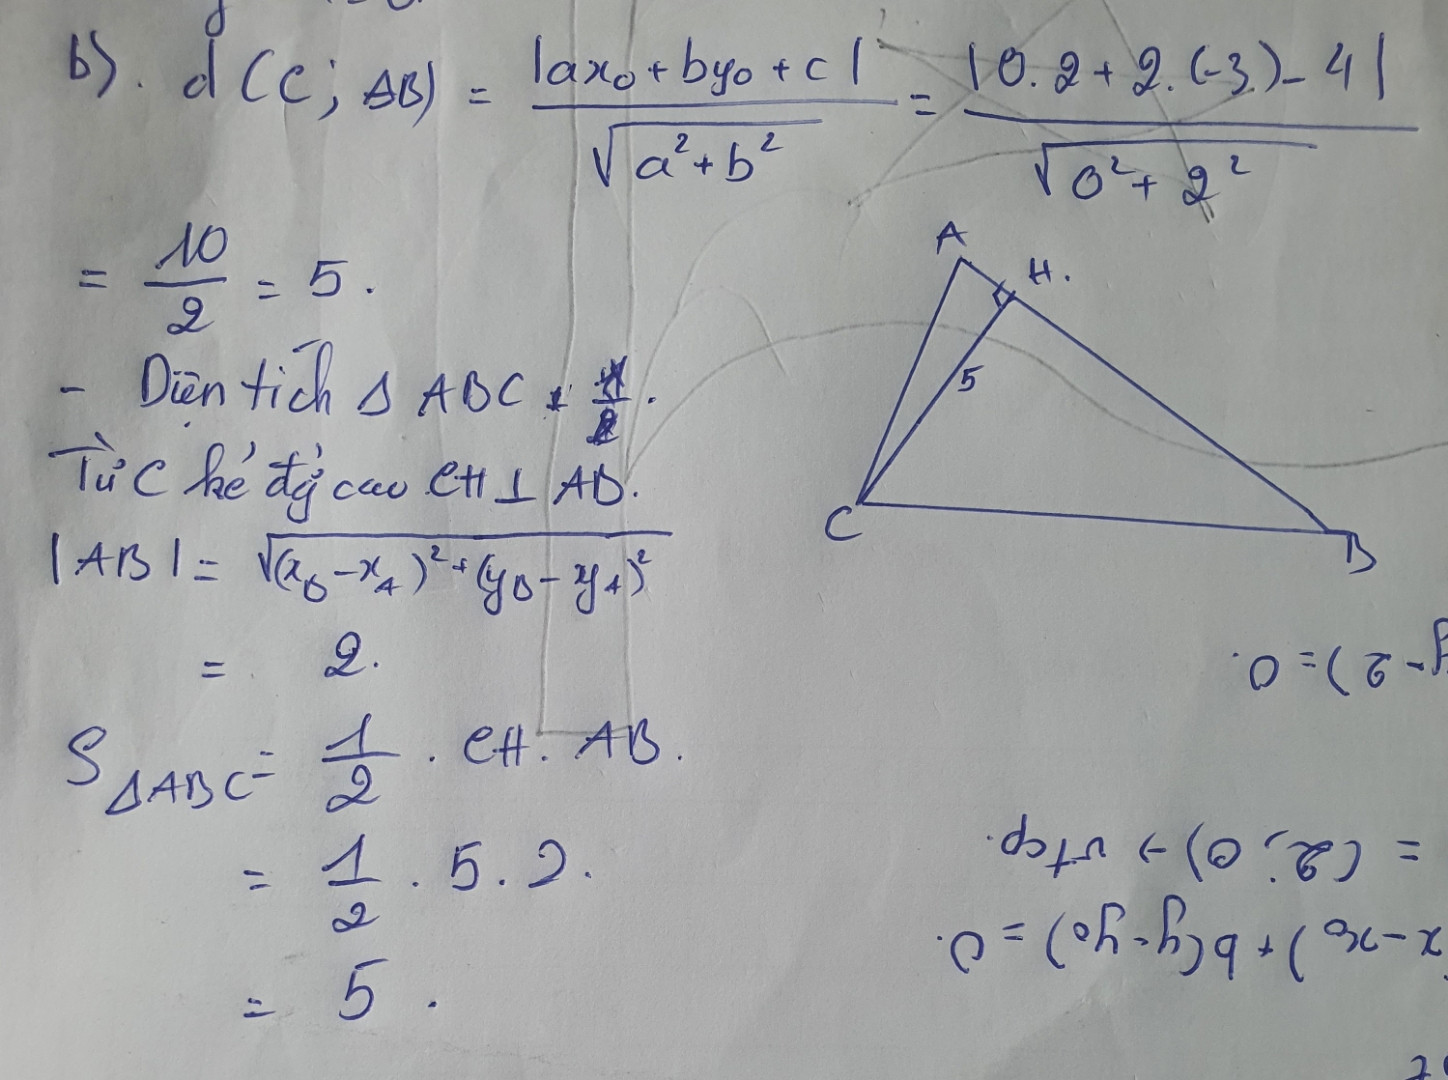 b). d(C; AB) = |ax₀ + by₀ + c| / √(a² + b²) = |0.2 + 2.(-3) - 4| / √(0² + 2²)
= 10/2 = 5.
- Diện tích Δ ABC
Từ C kẻ đg cao CH ⊥ AB.
|AB| = √((x_B - x_A)² + (y_B - y_A)²)
= 2.
S_ΔABC = 1/2 . CH . AB.
= 1/2 . 5 . 2.
= 5.
A
H.
5
C
B
y - 2) = 0.
= (2; 0) → vtcp.
x - x₀) + b(y - y₀) = 0.